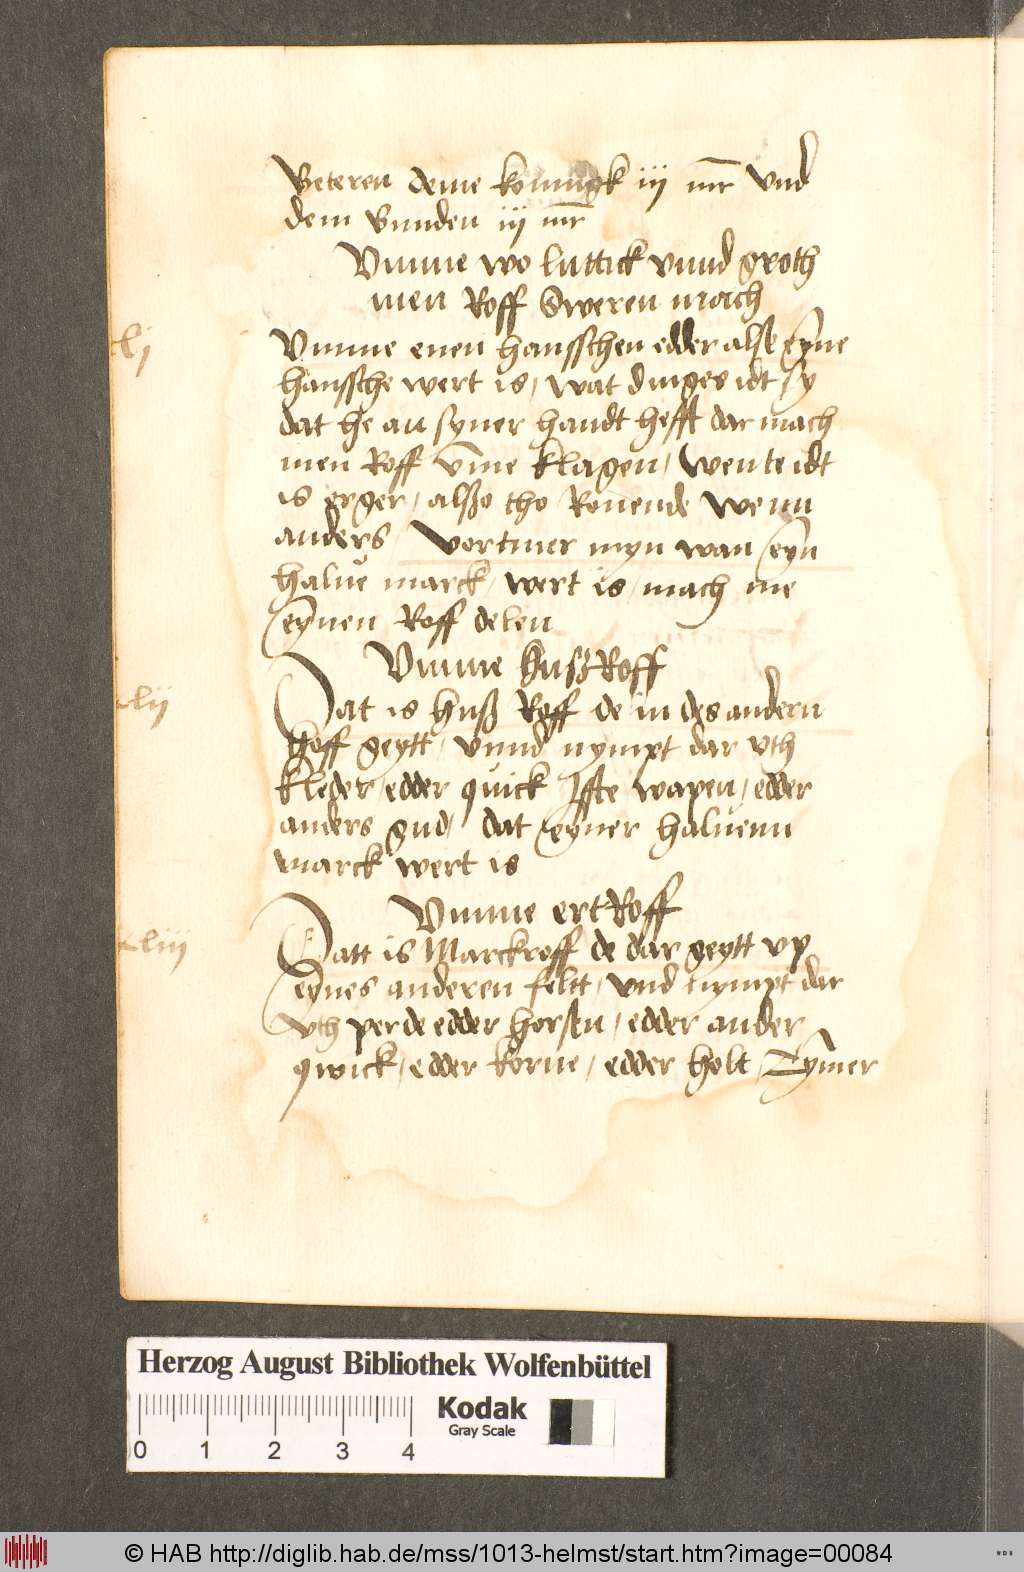 Beteren deme konningk iij mr vnd
dem Bunden iij mr
Vmme wo luttick vnnd groth
men Roff Sweren mach
xlj
Vmme enen hansschen edder alse eyne
hanssche wert is, wat dinges idt sy
dat he an syner handt hefft dar mach
men Roff vme klagen, wente idt
is erger, alßo tho Rouende wenn
anders, vortmer myn wan eyn
halue marck, wert is, mach me
eynen Roff delen
Vmme HußRoff
xlij
Dat is Huß Roff de in des andern
hoff geytt, vnnd nympt dar vth
kleder, edder quick Iffte wapen, edder
anders gud, dat eyner haluenn
marck wert is
Vmme ertRoff
xliij
Datt is Marckroff de dar geytt vp
eynes anderen feltt, vnd nympt dar
vth perde edder horsen, edder ander
qwick, edder korne, edder holt, Tymer
Herzog August Bibliothek Wolfenbüttel
Kodak
Gray Scale
0 1 2 3 4
© HAB http://diglib.hab.de/mss/1013-helmst/start.htm?image=00084